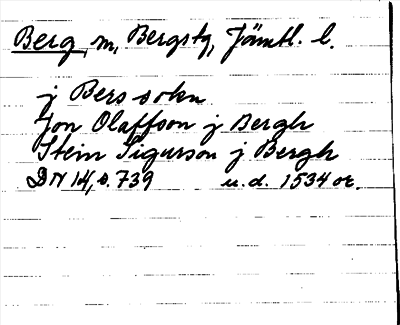 Berg, m, Bergstg, Jämtl. l.
j Bers sokn
Jon Olaffson j Bergh
Stein Sigurson j Bergh
DN 14, s. 739 u. d. 1534 or.